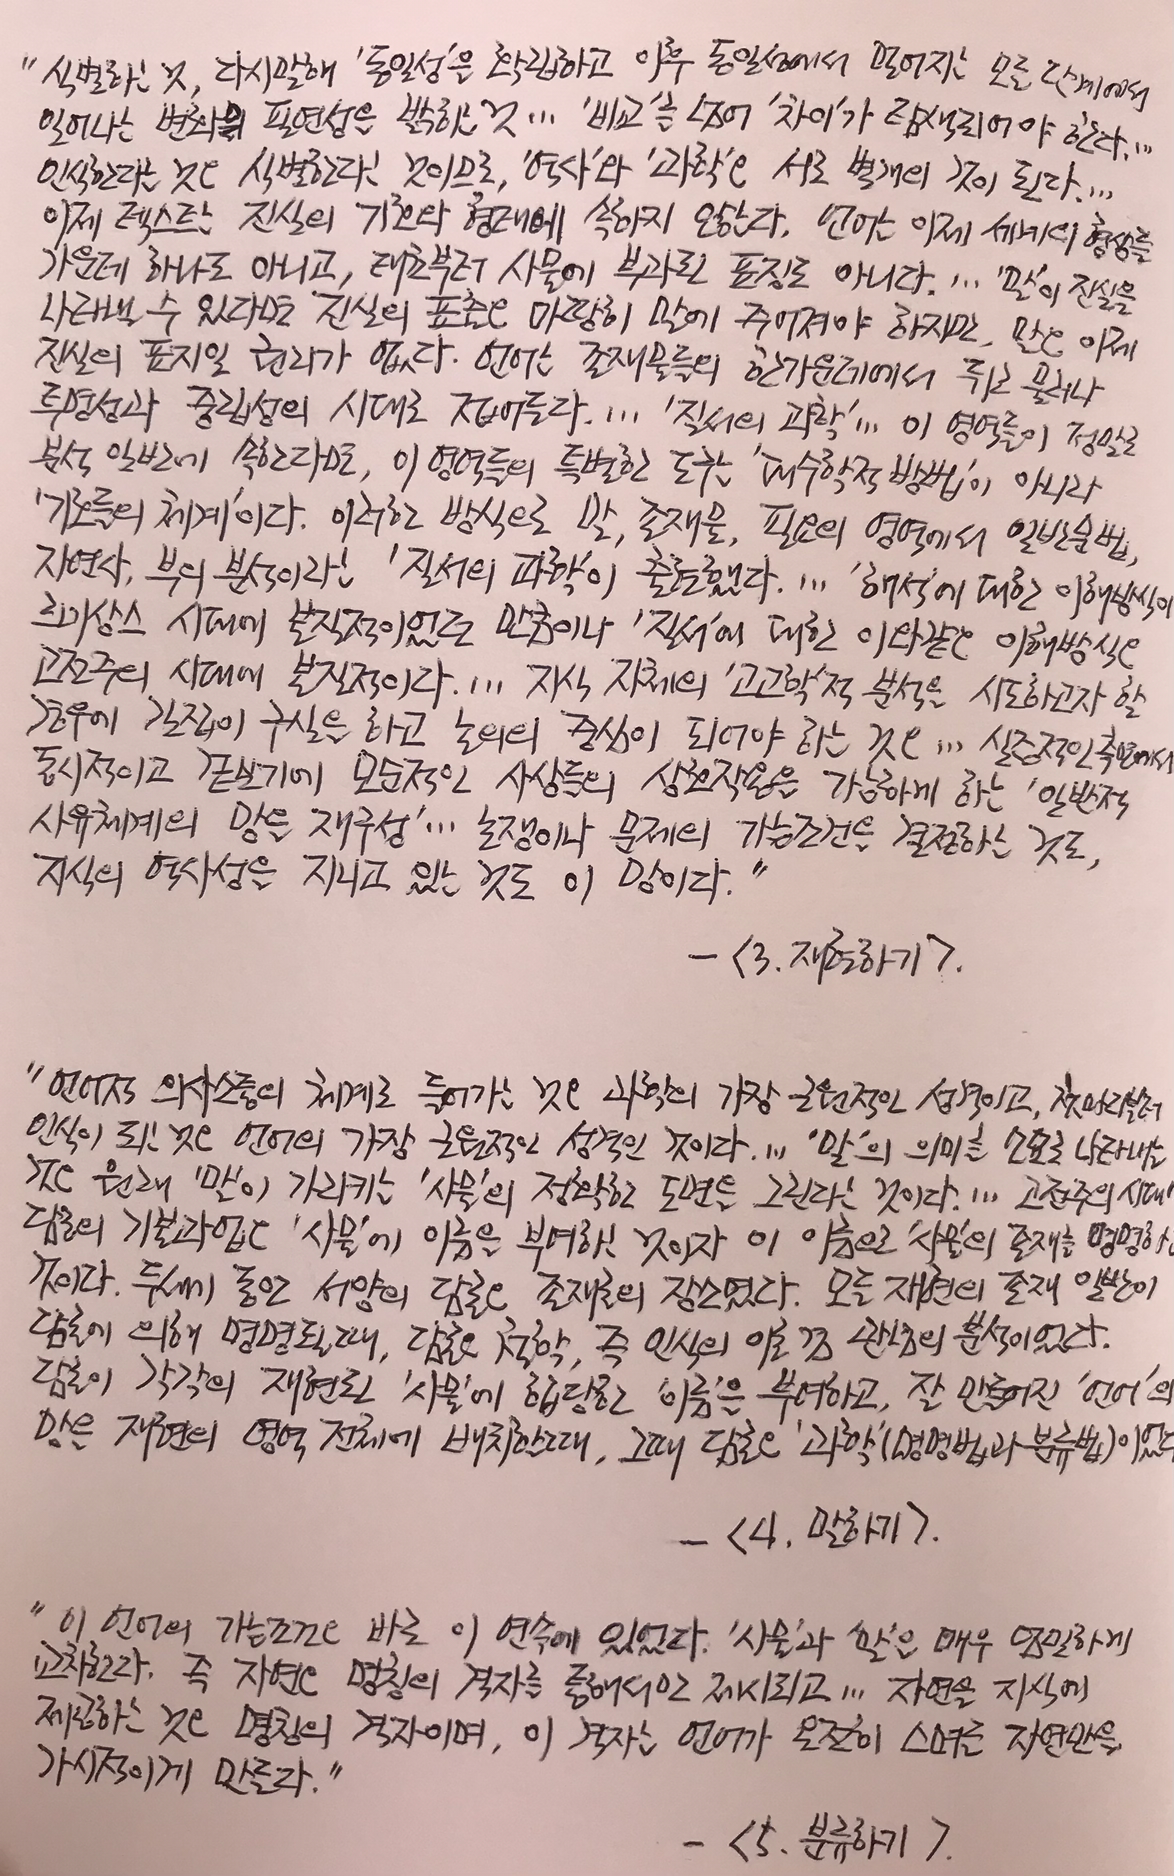 "식별하는 것, 다시말해 '동일성'을 확립하고 이후 동일성에서 멀어지는 모든 단계에서
일어나는 변화의 필연성을 밝히는 것… '비교'를 넘어 '차이'가 탐색되어야 한다.…
인식한다는 것은 식별한다는 것이므로, '역사'와 '과학'은 서로 별개의 것이 된다.…
이제 텍스트는 진실의 기호와 형태에 속하지 않는다. 언어는 이제 세계의 형상들
가운데 하나도 아니고, 태초부터 사물에 부과된 표징도 아니다.… '말'이 진실을
나타낼 수 있다면 진실의 표출은 마땅히 말에 주어져야 하지만, 말은 이제
진실의 표지일 권리가 없다. 언어는 존재물들의 한가운데에서 뒤로 물러나
투명성과 중립성의 시대로 접어든다.… '질서의 과학'… 이 영역들이 정말로
분석 일반에 속한다면, 이 영역들의 특별한 도구는 '대수학적 방법'이 아니라
'기호들의 체계'이다. 이러한 방식으로 말, 존재물, 필요의 영역에서 일반문법,
자연사, 부의 분석이라는 '질서의 과학'이 출현했다.… '해석'에 대한 이해방식이
르네상스 시대에 본질적이었던 만큼이나 '질서'에 대한 이와같은 이해방식은
고전주의 시대에 본질적이다.… 지식 자체의 '고고학'적 분석을 시도하고자 할
경우에 길잡이 구실을 하고 논의의 중심이 되어야 하는 것은… 실증적인 측면에서
동시적이고 겉보기에 모순적인 사상들의 상호작용을 가능하게 하는 '일반적
사유체계의 망을 재구성'… 논쟁이나 문제의 가능조건을 결정하는 것도,
지식의 역사성을 지니고 있는 것도 이 망이다."
- <3. 재현하기>.
"언어적 의사소통의 체계로 들어가는 것은 과학의 가장 근원적인 성격이고, 첫머리부터
인식이 되는 것은 언어의 가장 근원적인 성격인 것이다.… '말'의 의미를 으로 나타내는
것은 원래 '말'이 가리키는 '사물'의 정확한 도면을 그린다는 것이다.… 고전주의 시대
담론의 기본과업은 '사물'에 이름을 부여하는 것이자 이 이름으로 '사물'의 존재를 명명하는
것이다. 두세기 동안 서양의 담론은 존재론의 장소였다. 모든 재현의 존재 일반이
담론에 의해 명명될 때, 담론은 철학, 즉 인식의 이론 겸 관념의 분석이었다.
담론이 각각의 재현된 '사물'에 합당한 '이름'을 부여하고, 잘 만들어진 '언어'의
망을 재현의 영역 전체에 배치할 때, 그때 담론은 '과학'(명명법과 분류법)이었다
- <4. 말하기>.
"이 언어의 가능조건은 바로 이 연속에 있었다. '사물'과 '말'은 매우 엄밀하게
교차한다. 즉 자연은 명칭의 격자를 통해서만 제시되고… 자연을 지식에
제공하는 것은 명칭의 격자이며, 이 격자는 언어가 온전히 스며든 자연만을
가시적이게 만든다."
- <5. 분류하기>.